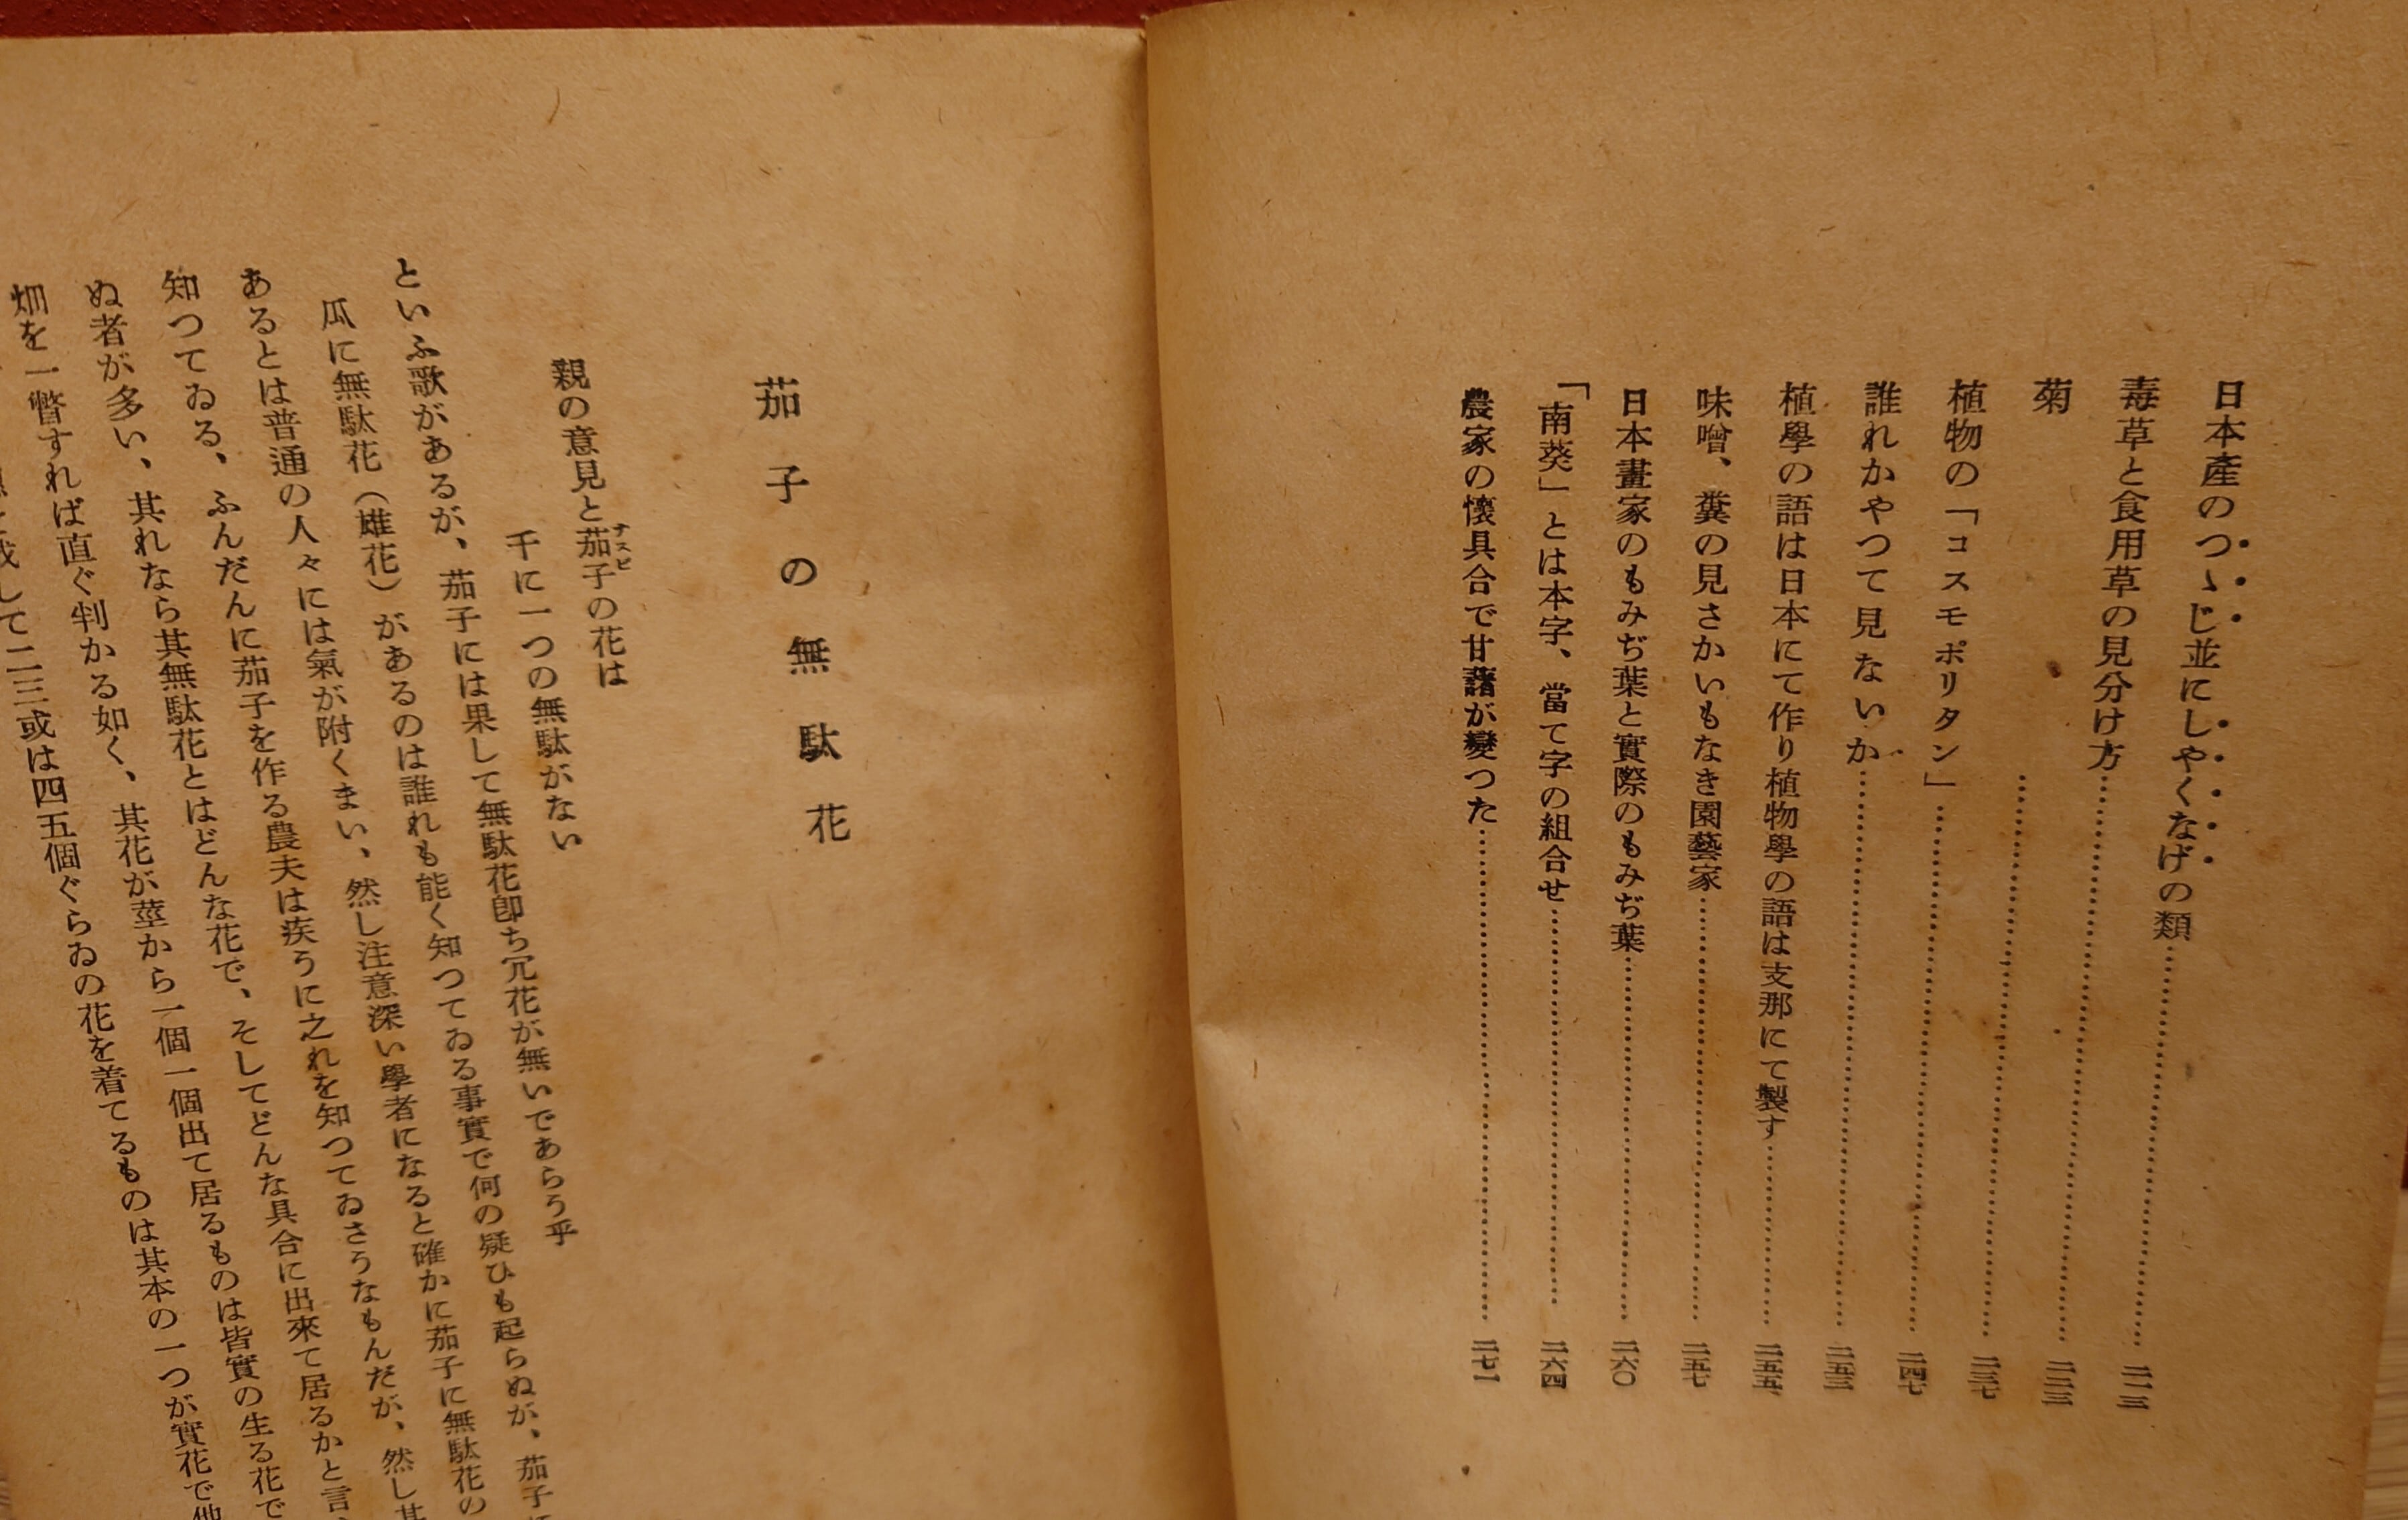 日本産のつゝじ並にしやくなげの類…………二一三
毒草と食用草の見分け方…………二二三
菊…………二三七
植物の「コスモポリタン」…………二四七
誰れかやつて見ないか…………二五三
植學の語は日本にて作り植物學の語は支那にて製す…………二五五
味噌、糞の見さかいもなき園藝家…………二五七
日本畫家のもみぢ葉と實際のもみぢ葉…………二六〇
「南葵」とは本字、當て字の組合せ…………二六四
農家の懷具合で甘藷が變つた…………二七一
茄子の無駄花
親の意見と茄子の花は
ナスビ
千に一つの無駄がない
といふ歌があるが、茄子には果して無駄花卽ち冗花が無いであらう乎
瓜に無駄花（雄花）があるのは誰れも能く知つてゐる事實で何の疑ひも起らぬが、茄子に
あるとは普通の人々には氣が附くまい、然し注意深い學者になると確かに茄子に無駄花の
知つてゐる、ふんだんに茄子を作る農夫は疾うに之れを知つてゐさうなもんだが、然し其
ぬ者が多い、其れなら其無駄花とはどんな花で、そしてどんな具合に出來て居るかと言
畑を一瞥すれば直ぐ判かる如く、其花が莖から一個一個出て居るものは皆實の生る花で
して二三或は四五個ぐらゐの花を着てるものは其本の一つが實花で他